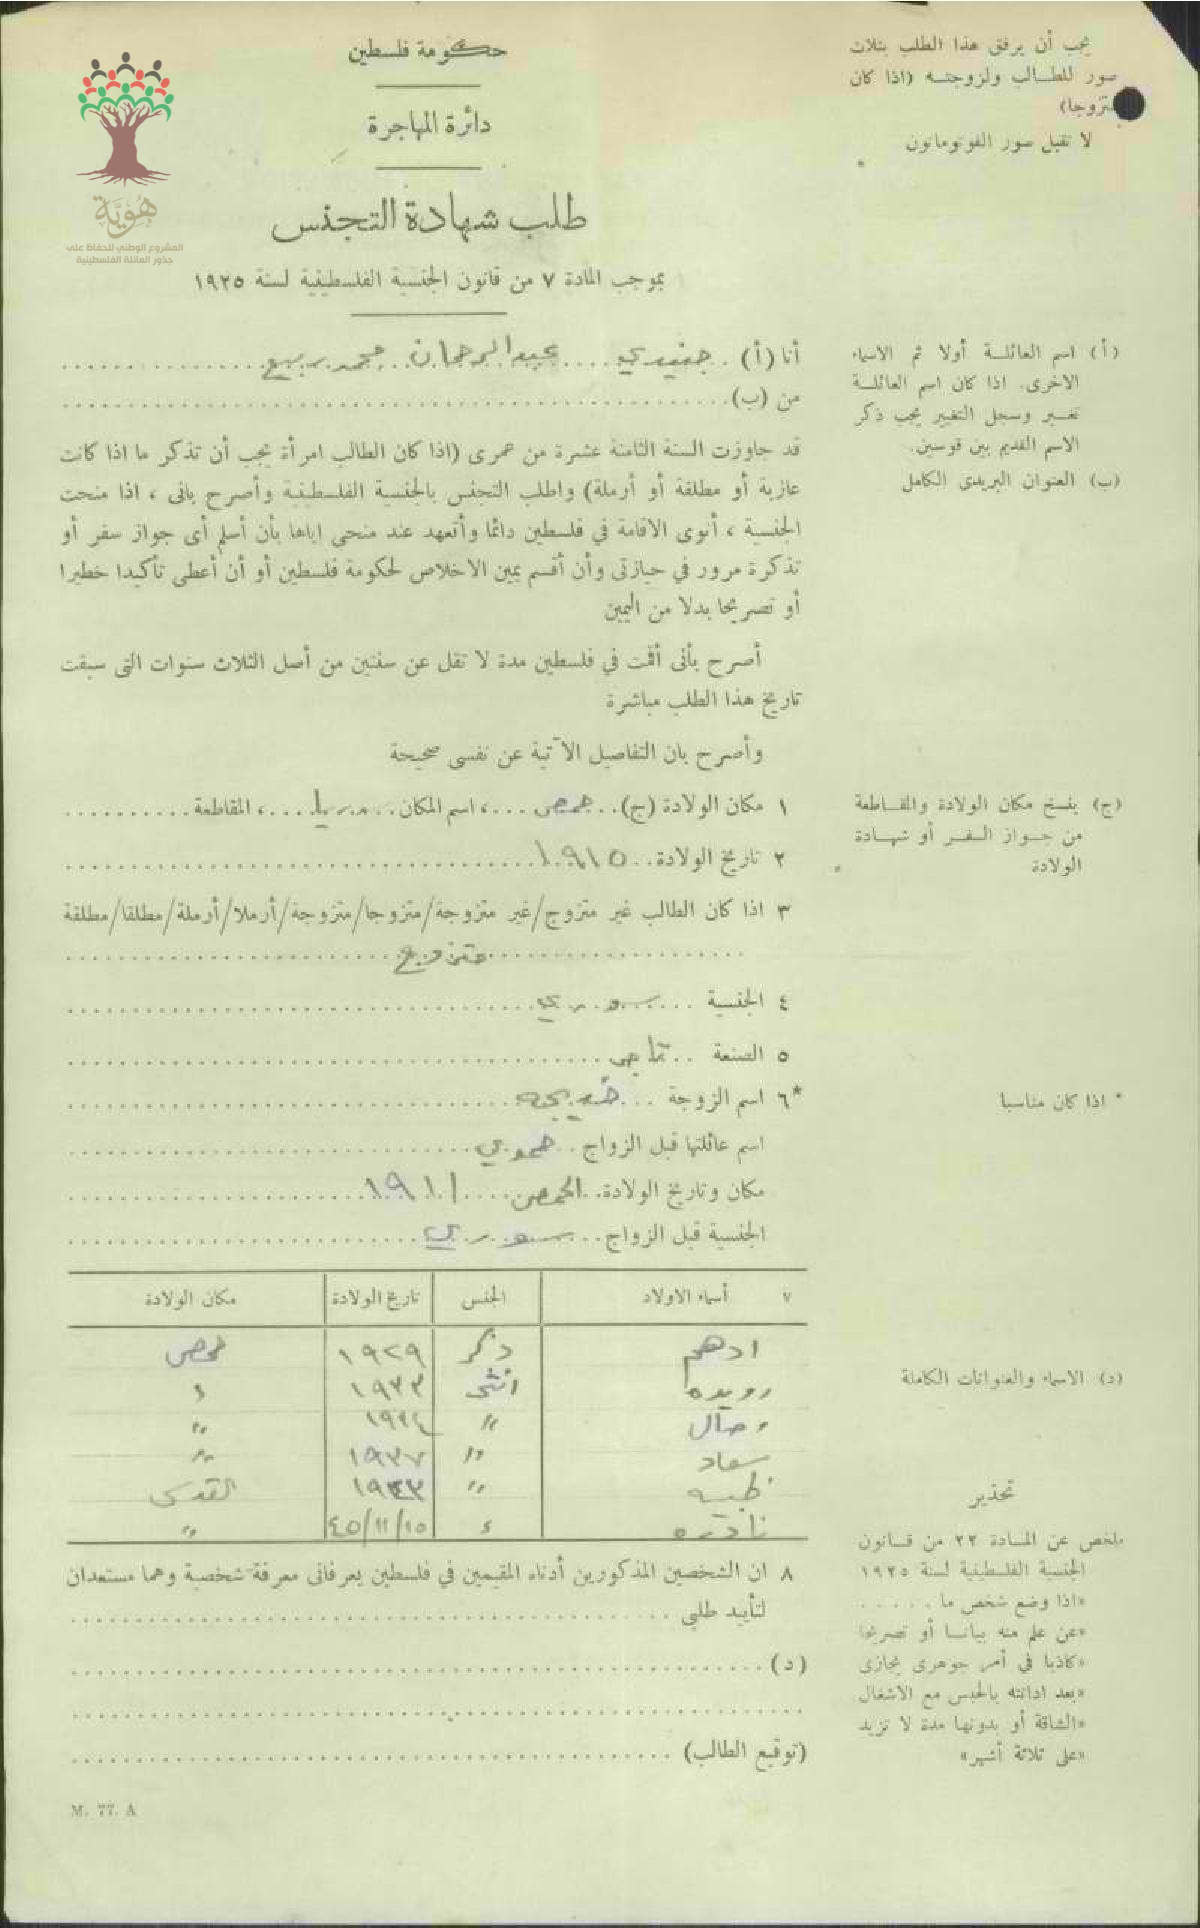 حكومة فلسطين
دائرة المهاجرة
طلب شهادة التجنس
بموجب المادة ٧ من قانون الجنسية الفلسطينية لسنة ١٩٢٥
هُوِيَّة
المشروع الوطني للحفاظ على
جذور العائلة الفلسطينية
يجب أن يرفق هذا الطلب بثلاث
صور للطالب ولزوجته (اذا كان
متزوجا)
لا تقبل صور الفوتوماتون
أنا (أ) جنيدي عبد الرحمان محمد ربيع
من (ب)
(أ) اسم العائلة أولا ثم الاسماء
الاخرى. اذا كان اسم العائلة
تغير وسجل التغيير يجب ذكر
الاسم القديم بين قوسين.
(ب) العنوان البريدى الكامل
قد جاوزت السنة الثامنة عشرة من عمرى (اذا كان الطالب امرأة يجب أن تذكر ما اذا كانت
عازبة أو مطلقة أو أرملة) واطلب التجنس بالجنسية الفلسطينية وأصرح بانى ، اذا منحت
الجنسية ، أنوى الاقامة في فلسطين دائما وأتعهد عند منحى اياها بأن أسلم أى جواز سفر أو
تذكرة مرور في حيازتى وأن أقسم يمين الاخلاص لحكومة فلسطين أو أن أعطى تأكيدا خطيرا
أو تصريحا بدلا من اليمين
أصرح بأنى أقمت في فلسطين مدة لا تقل عن سنتين من أصل الثلاث سنوات التى سبقت
تاريخ هذا الطلب مباشرة
وأصرح بان التفاصيل الآتية عن نفسى صحيحة
١ مكان الولادة (ج) حمص ، اسم المكان ، المقاطعة
(ج) ينسخ مكان الولادة والمقاطعة
من جواز السفر أو شهادة
الولادة
٢ تاريخ الولادة ١٩١٥
٣ اذا كان الطالب غير متزوج/غير متزوجة/متزوجا/متزوجة/أرملا/أرملة/مطلقا/مطلقة
متزوج
٤ الجنسية سوري
٥ الصنعة
*٦ اسم الزوجة خديجه
* اذا كان مناسبا
اسم عائلتها قبل الزواج حموي
مكان وتاريخ الولادة الحمص ١٩١١
الجنسية قبل الزواج سوري
٧ أسماء الاولاد الجنس تاريخ الولادة مكان الولادة
ادهم ذكر ١٩٢٩ حمص
رويده انثى ١٩٣٣ "
وصال " "
سعاد " ١٩٣٧ "
" القدس
نادره " ٤٥/١١/١٥ "
(د) الاسماء والعنوانات الكاملة
تحذير
ملخص عن المادة ٢٢ من قانون
الجنسية الفلسطينية لسنة ١٩٢٥
«اذا وضع شخص ما .....
«عن علم منه بيانا أو تصريحا
«كاذبا في أمر جوهرى يجازى
«بعد ادانته بالحبس مع الاشغال
«الشاقة أو بدونها مدة لا تزيد
«على ثلاثة أشهر»
٨ ان الشخصين المذكورين أدناه المقيمين في فلسطين يعرفانى معرفة شخصية وهما مستعدان
لتأييد طلبي
(د)
(توقيع الطالب)
M. 77. A